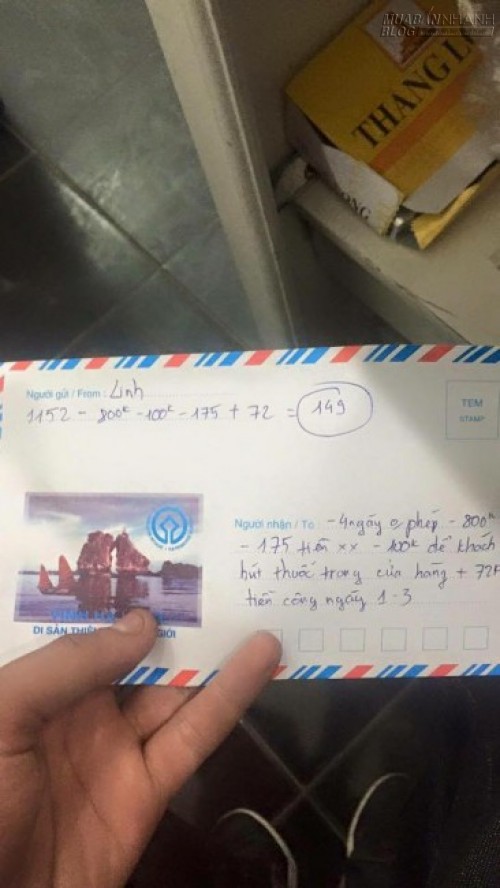 MUABANNHANH
BLOG
THANG L
ONG
Người gửi / From : Linh
1152 - 800k - 100k - 175 + 72 = 149
TEM
STAMP
Người nhận / To : - 4 ngày o phép - 800k
- 175 tiền xx - 100k để khách
hút thuốc trong cửa hàng + 72k
tiền công ngày 1-3
VỊNH HẠ
DI SẢN THIÊN GIỚI